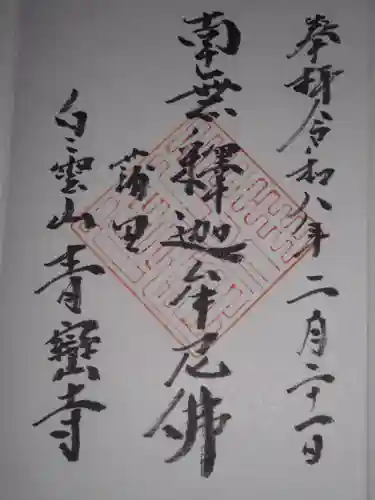 奉拝令和八年二月二十一日
南無釋迦牟尼佛
蒲田
白雲山青巒寺